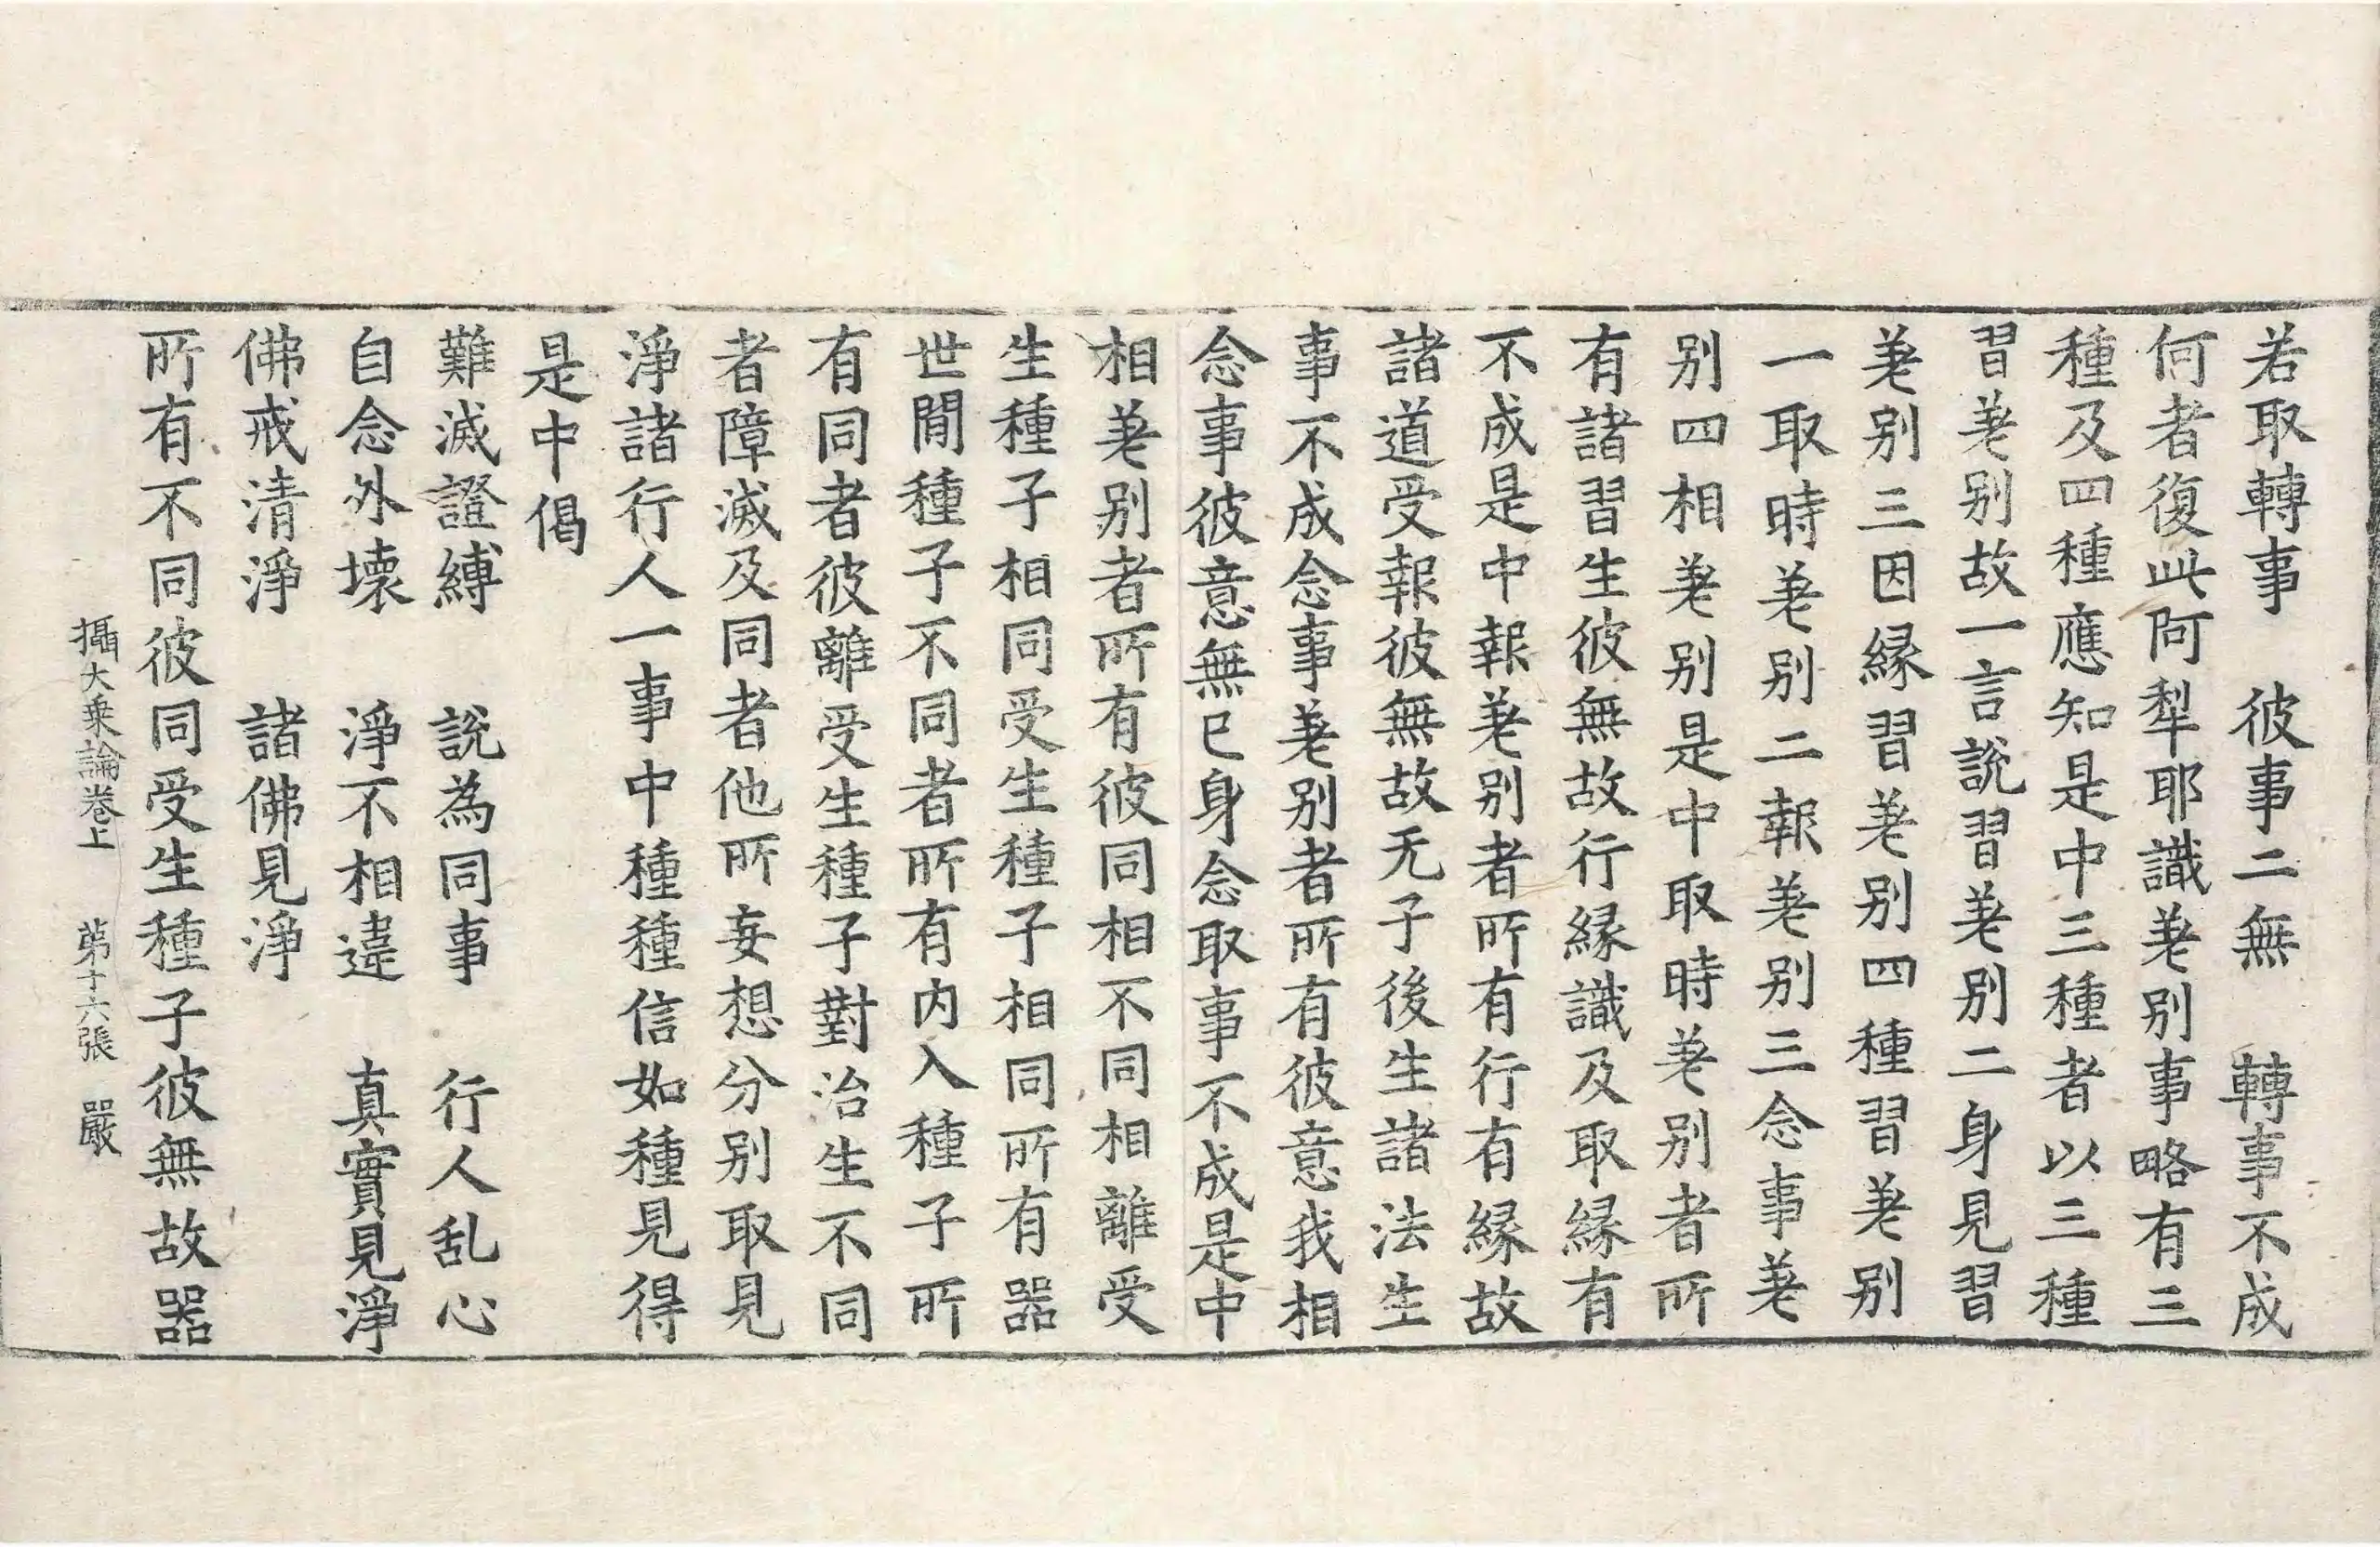 若取轉事　彼事二無　轉事不成
何者復此阿犁耶識差別事略有三
種及四種應知是中三種者以三種
習差別故一言說習差別二身見習
差別三因緣習差別四種習差別
一取時差別二報差別三念事差
別四相差別是中取時差別者所
有諸習生彼無故行緣識及取緣有
不成是中報差別者所有行有緣故
諸道受報彼無故无子後生諸法生
事不成念事差別者所有彼意我相
念事彼意無已身念取事不成是中
相差別者所有彼同相不同相離受
生種子相同受生種子相同所有器
世間種子不同者所有内入種子所
有同者彼離受生種子對治生不同
者障滅及同者他所妄想分別取見
淨諸行人一事中種種信如種見得
是中偈
難滅證縛　說為同事　行人乱心
自念外壞　淨不相違　真實見淨
佛戒清淨　諸佛見淨
所有不同彼同受生種子彼無故器
攝大乗論卷上　第十六張　嚴